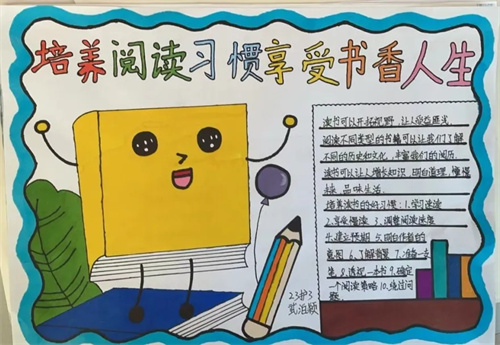 培养阅读习惯享受书香人生
读书可以开拓视野，让人受益匪浅，
阅读不同类型的书籍可以让我们了解
不同的历史和文化，丰富我们的阅历，
读书可以让人增长知识，明白道理，懂得
品味生活
培养读书的好习惯：1.学习速读
2.享受慢读 3.调整阅读速度
4.建立预期 5.明白作者的
意图 6.了解背景 7.准备一支
笔 8.透视一本书 9.确定
一个阅读策略 10.绕过问
题
23护3